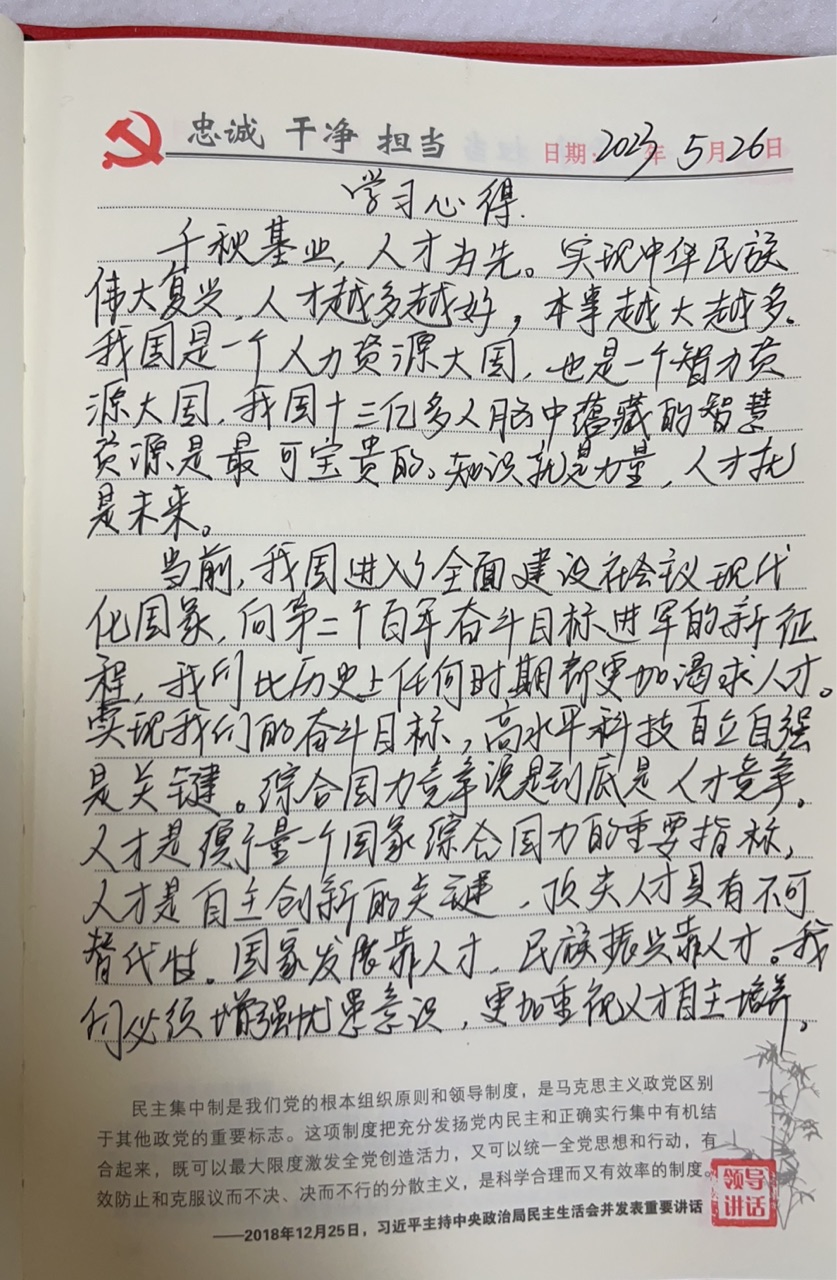 忠诚 干净 担当
日期: 2023年 5月26日
学习心得.
千秋基业,人才为先。实现中华民族
伟大复兴,人才越多越好,本事越大越多.
我国是一个人力资源大国,也是一个智力资
源大国,我国十三亿多人脑中蕴藏的智慧
资源是最可宝贵的。知识就是力量,人才就
是未来。
当前,我国进入了全面建设社会议现代
化国家,向第二个百年奋斗目标进军的新征
程,我们比历史上任何时期都更加渴求人才。
实现我们的奋斗目标,高水平科技自立自强
是关键。综合国力竞争说是到底是人才竞争。
人才是衡量一个国家综合国力的重要指标,
人才是自主创新的关键,顶尖人才具有不可
替代性。国家发展靠人才,民族振兴靠人才。我
们必须增强忧患意识,更加重视人才自主培养。
民主集中制是我们党的根本组织原则和领导制度,是马克思主义政党区别
于其他政党的重要标志。这项制度把充分发扬党内民主和正确实行集中有机结
合起来,既可以最大限度激发全党创造活力,又可以统一全党思想和行动,有
效防止和克服议而不决、决而不行的分散主义,是科学合理而又有效率的制度。
——2018年12月25日,习近平主持中央政治局民主生活会并发表重要讲话
领导
讲话